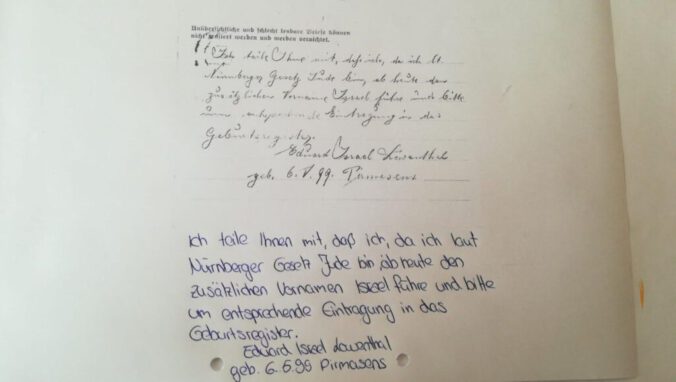 Unübersichtliche und schlecht lesbare Briefe können
nicht zensiert werden und werden vernichtet.
Ich teile Ihnen mit, daß ich, da ich lt
Nürnberger Gesetz Jude bin, ab heute den
zusätzlichen Vornamen Israel führe und bitte
um entsprechende Eintragung in das
Geburtsregister.
Eduard Israel Löwenthal
geb. 6. V. 99. Pirmasens
Ich teile Ihnen mit, daß ich, da ich laut
Nürnberger Gesetz Jude bin, ab heute den
zusätzlichen Vornamen Israel führe und bitte
um entsprechende Eintragung in das
Geburtsregister.
Eduard Israel Löwenthal
geb. 6.5.99 Pirmasens